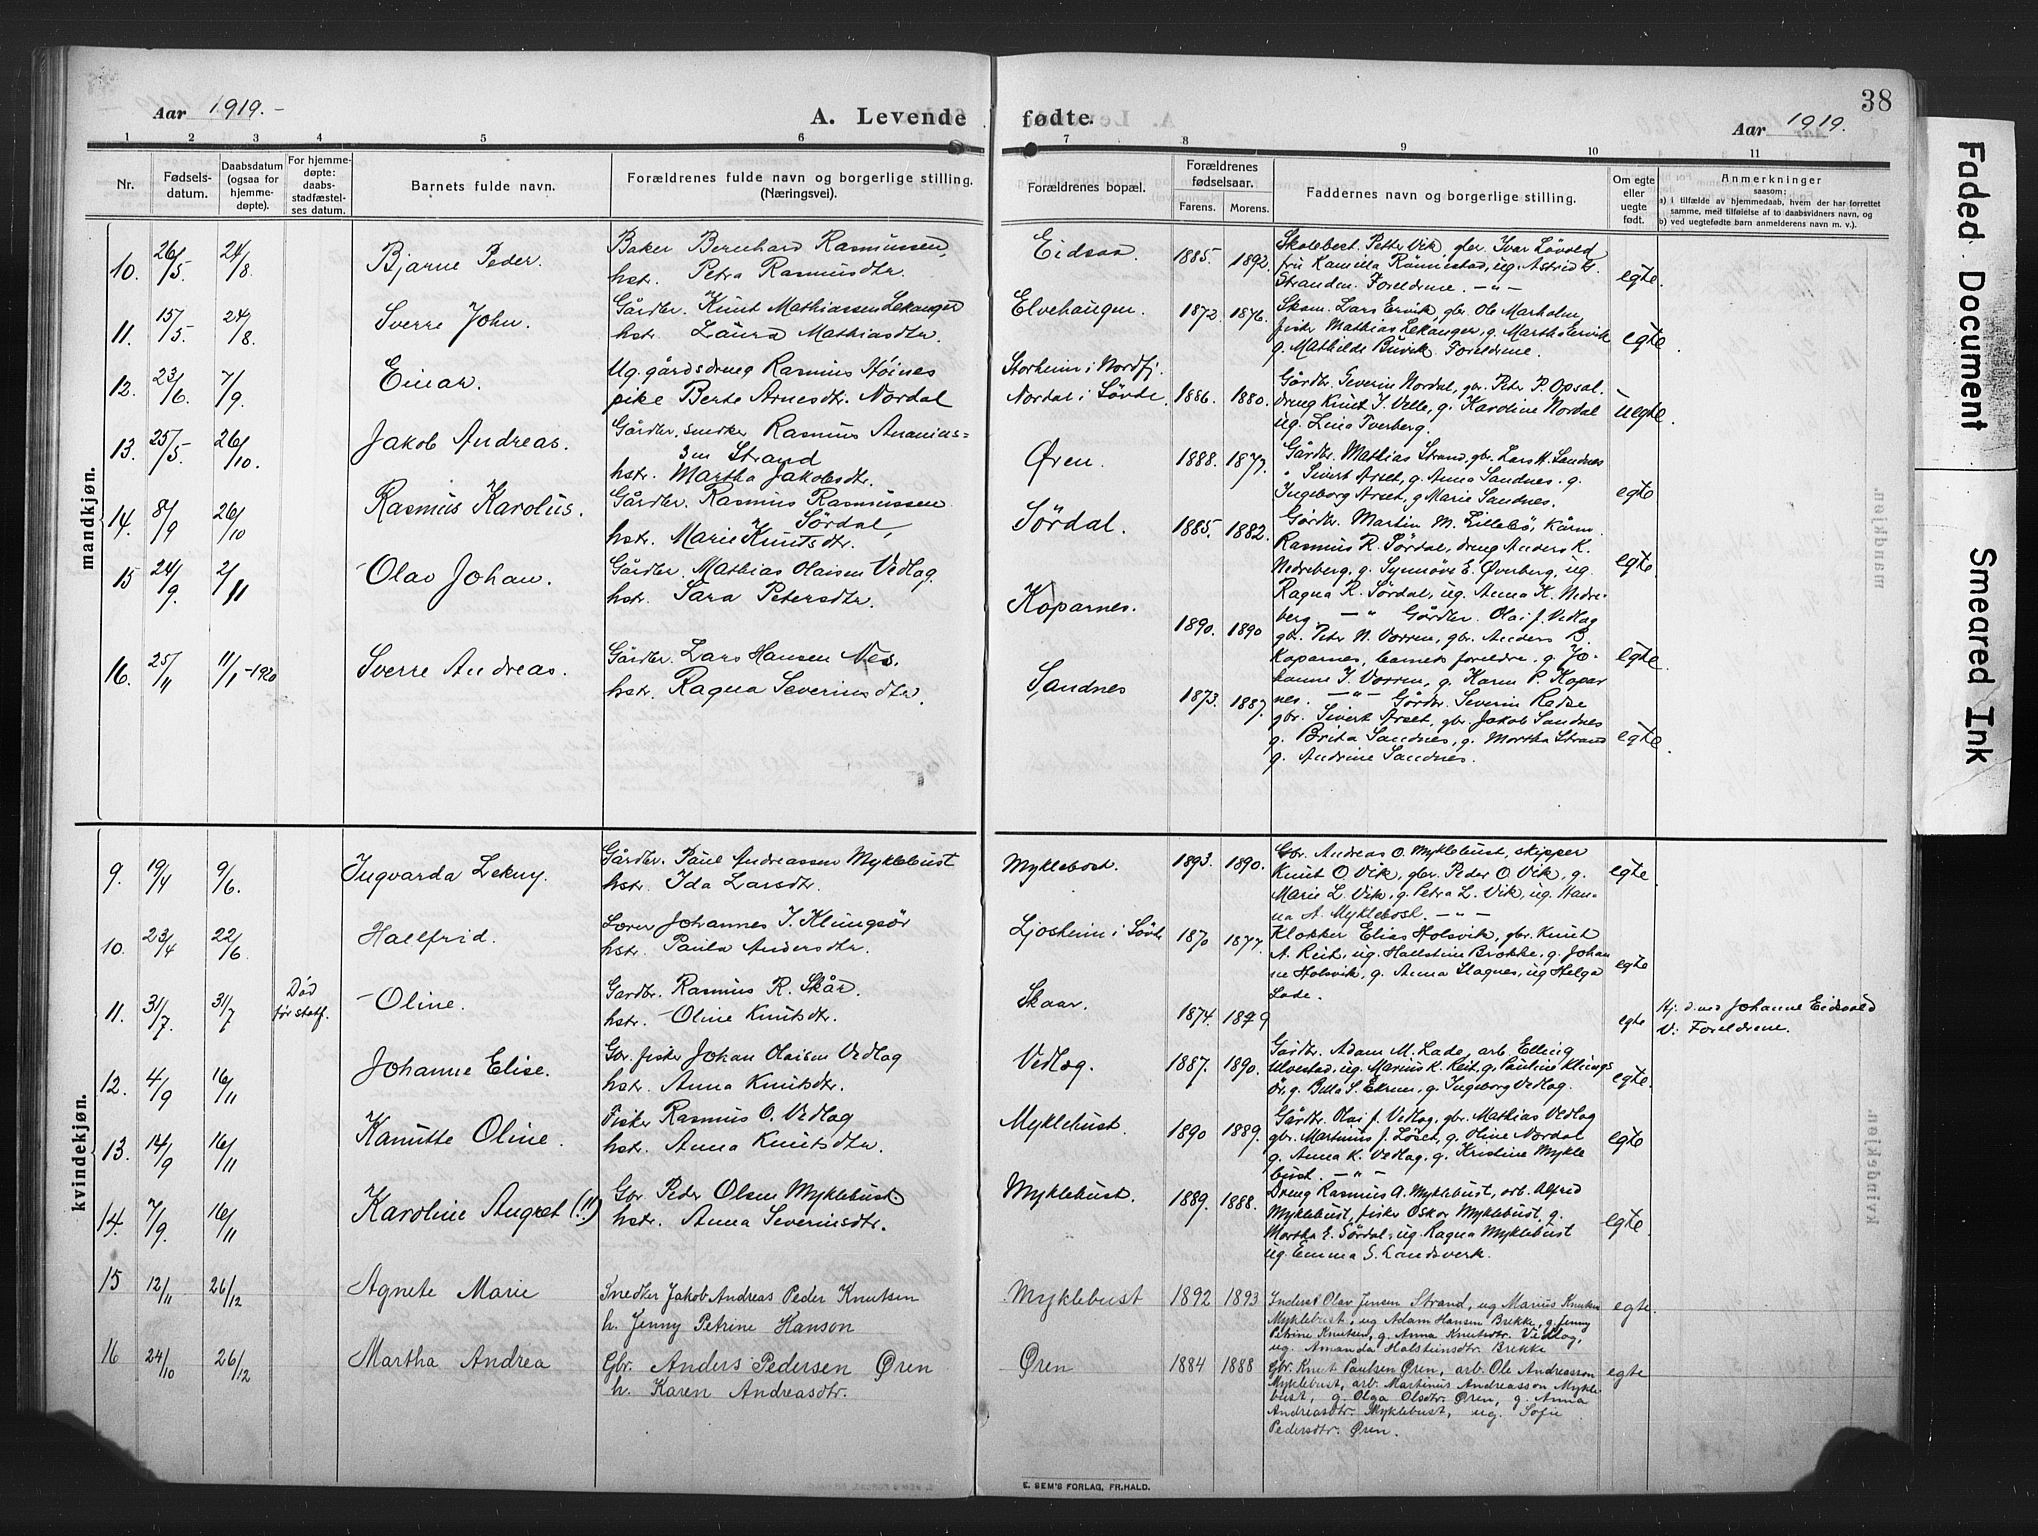 Aar 1919.-
A. Levende
fødte.
Aar 1919.
38
1 2 3 4 5 6 7 8 9 10 11
Nr.
Fødsels-
datum.
Daabsdatum
(ogsaa for
hjemme-
døpte).
For hjemme-
døpte:
daabs-
stadfæstel-
ses datum.
Barnets fulde navn.
Forældrenes fulde navn og borgerlige stilling.
(Næringsvei).
Forældrenes bopæl.
Forældrenes
fødselsaar.
Farens. Morens.
Faddernes navn og borgerlige stilling.
Om egte
eller
uegte
født.
Anmerkninger
saasom:
a) i tilfælde av hjemmedaab, hvem der har forrettet
samme, med tilføielse af to daabsvidners navn, og
b) ved uegtefødte barn anmelderens navn m. v.).
mandkjøn.
10. 26/5 24/8 Bjarne Peder.
Baker Bernhard Rasmussen,
hstr. Petra Rasmusdtr.
Eidsaa. 1885. 1892.
Skolebest. Petter Vik, gbr. Ivar Lövold
fru Kamilla Rönnestad, ug. Astrid
Stranden. Foreldrene. -"-
egte.
11. 15/5 24/8 Sverre John.
Gårdbr. Knut Mathiassen Lekanger
hstr. Laura Mathiasdtr.
Elvehaugen. 1872. 1876.
Skom. Lars Ervik, gbr. Ole Marholm,
fisker Mathias Lekanger, g. Martha Ervik
g. Mathilde Buvik. Foreldrene.
egte.
12. 23/6 7/9 Einar.
Ug. gårdsdreng Rasmus Höines
pike Berte Arnesdtr. Nordal
Storheim i Nordfj.
Nordal i Sövde. 1886. 1880.
Gårdbr. Severin Nordal, gbr. Peter P. Opsal.
dreng Knut J. Velle, g. Karoline Nordal
ug. Lina Tverberg.
uegte.
13. 25/5. 26/10. Jakob Andreas.
Gårdbr, snedker Rasmus Ananias-
sen Strand
hstr. Martha Jakobsdtr.
Øren. 1888. 1877.
Gårdbr. Mathias Strand, gbr. Lars H. Sandnes
" Sivert Arset, g. Anna Sandnes. g.
Ingeborg Arset, g Marie Sandnes.
egte
14. 8/9 26/10 Rasmus Karolus.
Gårdbr. Rasmus Rasmussen
Sördal,
hstr. Marie Knutsdtr.
Sördal. 1885. 1882.
Gårdbr. Martin M. Lillebö, kårm.
Rasmus R. Sördal, dreng Anders K.
Nedreberg, g. Synnöve E. Överberg, ug.
Ragna R. Sördal, ug. Anna K. Nedre-
berg -"-
egte.
15 24/9. 2/11 Olav Johan.
Gårdbr. Mathias Olaisen Vedlog
hstr. Sara Petersdtr.
Koparnes. 1890. 1890
Gårdbr. Olai J. Vedlog
gbr. Peter N. Vorren, gbr. Anders B.
Koparnes, barnets foreldre. g. Jo-
hanne J. Vorren, g. Karen P. Kopar
nes. -"-
egte.
16. 25/11 11/1-1920 Sverre Andreas.
Gårdbr. Lars Hansen Nes.
hstr. Ragna Severinsdtr.
Sandnes 1873. 1887.
Gårdbr. Severin Radse
gbr. Sivert Arset, gbr. Jakob Sandnes
g. Brita Sandnes, g. Martha Strand
g. Andrine Sandnes.
egte.
kvindekjøn.
9. 19/4 9/6. Ingvarda Lekny.
Gårdbr. Paul Andreassen Myklebust
hstr. Ida Larsdtr.
Myklebost. 1893. 1890.
Gbr. Andreas O. Myklebust, skipper
Knut O Vik, gbr. Peder O. Vik, g.
Marie L. Vik, g. Petra L. Vik, ug. Han-
na A. Myklebost. -"-
egte.
10. 23/4 22/6 Hallfrid.
Lærer Johannes J. Klungsör
hstr. Paula Andersdtr.
Ljosheim i Sövde 1870 1877.
Klokker Elias Holsvik, gbr. Knut
A. Reit, ug. Hallstine Brekke, g. Johan
ne Holsvik, g. Anna Stagnes, ug Helga
Lade.
egte
11. 31/7. 31/7 Död
för statf. Oline.
Gardbr. Rasmus R. Skår.
hstr. Oline Knutsdtr.
Skaar. 1874. 1879
egte
Hj. d. ved Johanne Eidsvold
V: Foreldrene.
12. 4/9 16/11 Johanne Elise.
Gbr. fisker Johan Olaisen Vedlog
hstr. Anna Knutsdtr.
Vedlog. 1887. 1890.
Gårdbr. Adam M. Lade, arb. Elling
Ulvestad, ug. Marius K. Reit, g. Pauline Klings
ör, g. Berta S. Ekrem, g. Ingeborg Vedlog.
egte.
13. 14/9 16/11 Kanutte Oline.
Fisker Rasmus O. Vedlog
hstr. Anna Knutsdtr.
Myklebust. 1890 1889.
Gårdbr. Olai J. Vedlog, gbr. Mathias Vedlog
gbr. Martinus J. Löset, g. Oline Nordal
g. Anna K. Vedlog, g. Kristine Mykle
bust. -"-
egte
14. 7/9. 16/11 Karoline Angret (!!)
Gbr Peder Olsen Myklebust
hstr. Anna Severinsdtr.
Myklebust. 1889. 1888.
Dreng Rasmus A. Myklebust, arb. Alfred
Myklebust, fisker Oskar Myklebust, g.
Martha E. Sördal, ug. Ragna Myklebust
ug. Emma S. Landsverk.
egte
15 12/11 26/12 Agnete Marie
Snedker Jakob Andreas Peder Knutsen
h. Jenny Petrine Hanson
Myklebust 1892 1893
Inderst Olav Jensen Strand, ug Marius Knutsen
Myklebust, ug Adam Hansen Brekke, g. Jenny
Petrine Knutsen, g. Anna Knutsdtr. Vedlog,
ug. Amanda Halsteinsdtr. Brekke
egte.
16 24/10 26/12 Martha Andrea
Gbr. Anders Pedersen Øren
h. Karen Andreasdtr.
Øren 1884 1888
Gbr. Knut Paulsen Øren, arb. Ole Andreasson
Myklebust, arb. Martinus Andreasson Mykle-
bust, g. Olga Olsdtr. Øren, g. Anna
Andreasdtr. Myklebust, ug. Sofie
Pedersdtr. Øren.
egte
E. SEM'S FORLAG, FR.HALD.
Faded Document
Smeared Ink